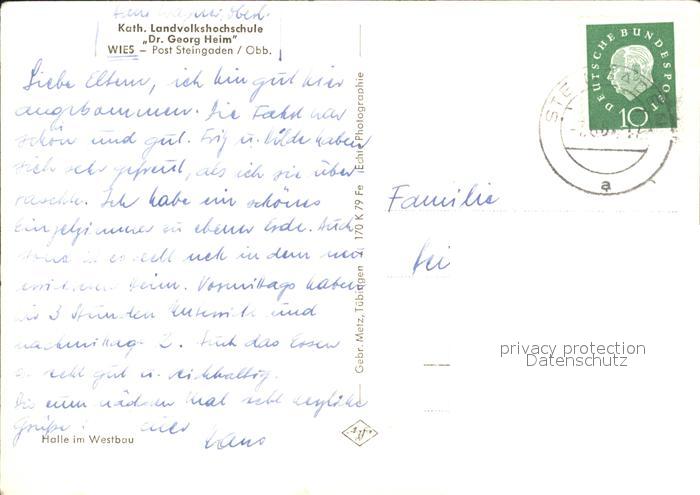 Kath. Landvolkshochschule
„Dr. Georg Heim"
WIES – Post Steingaden / Obb.
Liebe Eltern, ich bin gut hier
angekommen. Die Fahrt war
schön und gut. u. Hilde haben
sich sehr gefreut, als ich sie über
raschte. Ich habe ein schönes
Einzelzimmer zu ebener Erde. Auch
es sehr nett in dem neu
Heim. Vormittags haben
wir 3 Stunden Unterricht und
nachmittag 2. Auch das Essen
sehr gut u. reichhaltig.
Bis zum nächsten Mal sehr herzliche
Grüße! euer
Hans
Halle im Westbau
Gebr. Metz, Tübingen 170 K 79 Fe Echte Photographie
DEUTSCHE BUNDESPOST
10
a
Familie
privacy protection
Datenschutz